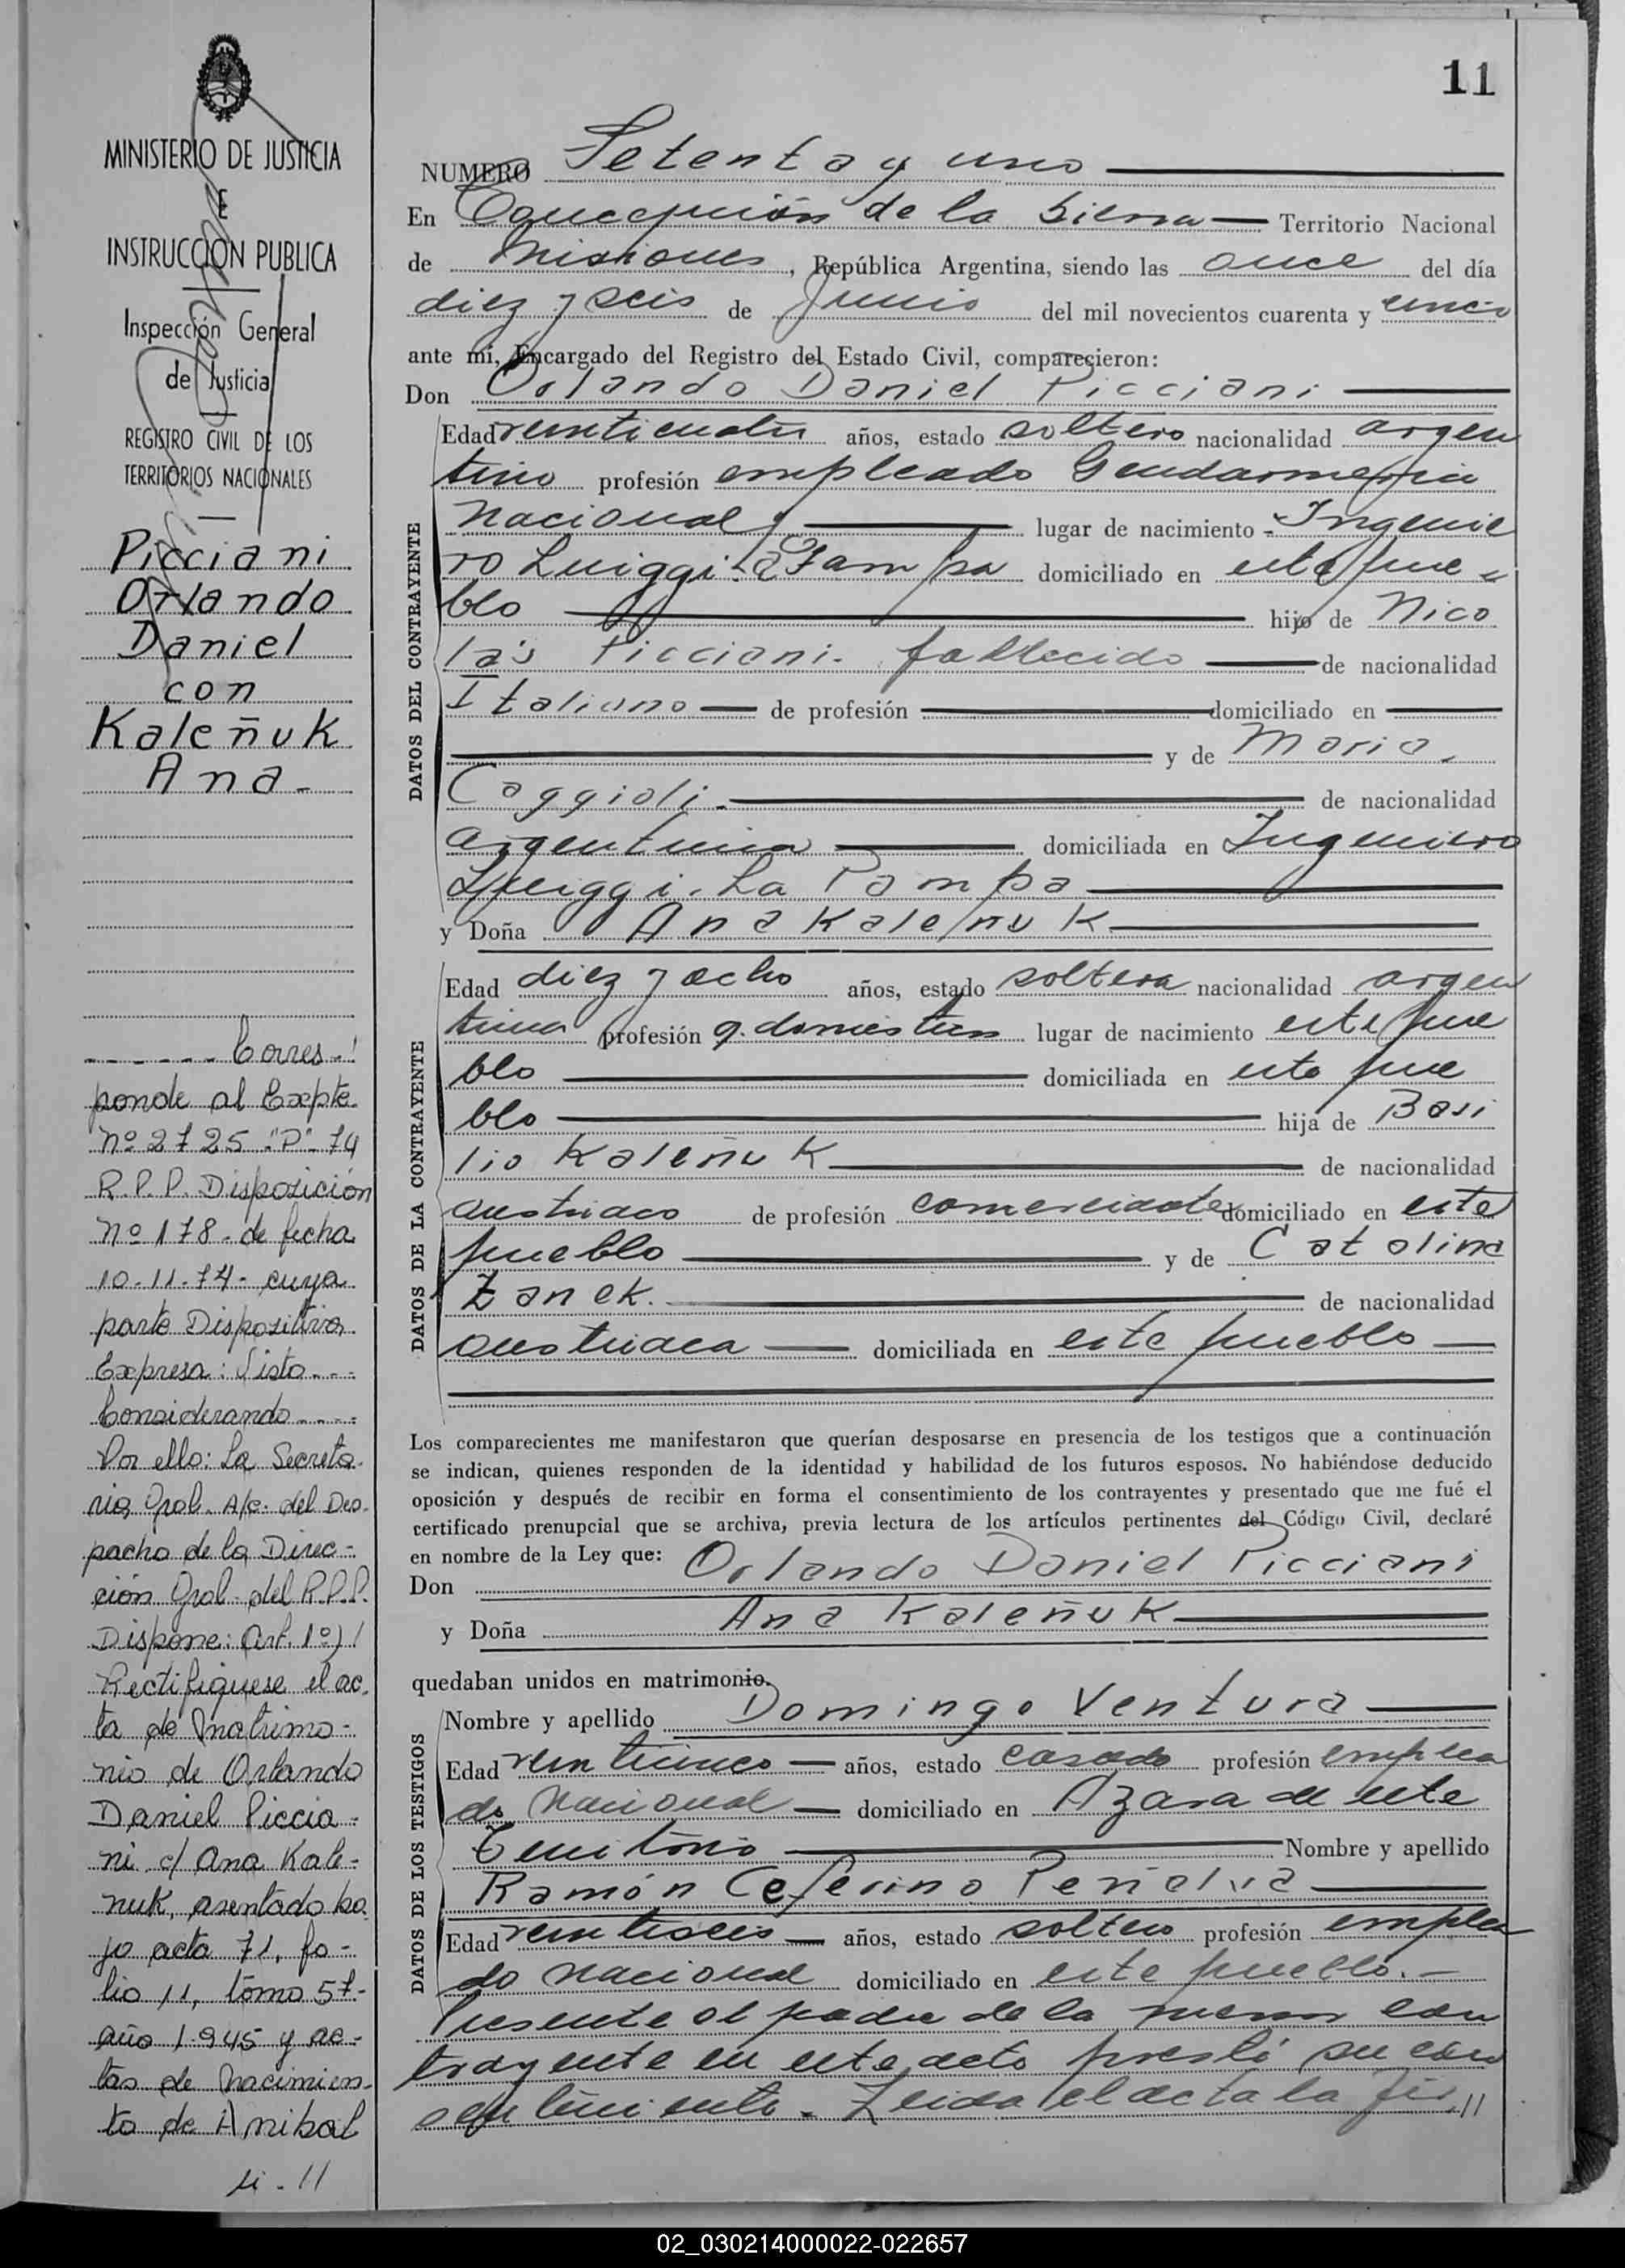 11
MINISTERIO DE JUSTICIA
E
INSTRUCCION PUBLICA
Inspección General
de Justicia
REGISTRO CIVIL DE LOS
TERRITORIOS NACIONALES
Picciani
Orlando
Daniel
con
Kaleñuk
Ana.
Corres-
ponde al Expte.
Nº 2725 "P" 74
R.P.P. Disposición
Nº 178 - de fecha
10-11-74 - cuya
parte Dispositiva
Expresa: Visto...
Considerando....
Por ello: La Secreta-
ria Gral. A/c. del Des-
pacho de la Direc-
ción Gral. del R.P.P.
Dispone: Art. 1º)
Rectifíquese el ac-
ta de Matrimo-
nio de Orlando
Daniel Piccia-
ni c/ Ana Kale-
nuk, asentado ba
jo acta 71, fo-
lio 11, tomo 57-
año 1.945 y ac-
tas de Nacimien-
to de Anibal
NUMERO Setenta y uno
En Concepción de la Sierra — Territorio Nacional
de Misiones, República Argentina, siendo las once del día
diez y seis de Junio del mil novecientos cuarenta y cinco
ante mí, Encargado del Registro del Estado Civil, comparecieron:
Don Orlando Daniel Picciani
DATOS DEL CONTRAYENTE
Edad veinticuatro años, estado soltero nacionalidad argen
tino profesión empleado Gendarmería
Nacional lugar de nacimiento - Ingenie
ro Luiggi. La Pampa domiciliado en este pue
blo hijo de Nico
lás Picciani. fallecido de nacionalidad
Italiano — de profesión — domiciliado en —
y de María
Caggioli. de nacionalidad
argentina domiciliada en Ingeniero
Luiggi. La Pampa
y Doña Ana Kaleñuk
DATOS DE LA CONTRAYENTE
Edad diez y ocho años, estado soltera nacionalidad argen
tina profesión q. domésticos lugar de nacimiento este pue
blo domiciliada en este pue
blo hija de Basi
lio Kaleñuk de nacionalidad
austriaco de profesión comerciante domiciliado en este
pueblo y de Catalina
Zanek. de nacionalidad
austriaca — domiciliada en este pueblo —
Los comparecientes me manifestaron que querían desposarse en presencia de los testigos que a continuación
se indican, quienes responden de la identidad y habilidad de los futuros esposos. No habiéndose deducido
oposición y después de recibir en forma el consentimiento de los contrayentes y presentado que me fué el
certificado prenupcial que se archiva, previa lectura de los artículos pertinentes del Código Civil, declaré
en nombre de la Ley que:
Don Orlando Daniel Picciani
y Doña Ana Kaleñuk
quedaban unidos en matrimonio.
DATOS DE LOS TESTIGOS
Nombre y apellido Domingo Ventura
Edad veinticinco — años, estado casado profesión emplea
do Nacional — domiciliado en Azara de este
Territorio Nombre y apellido
Ramón Ceferino Peñalva
Edad veintiseis — años, estado soltero profesión emplea
do nacional domiciliado en este pueblo.-
Presente el padre de la menor con
trayente en este acto prestó su con
sentimiento. Leida el acta la fir.//
02_030214000022-022657